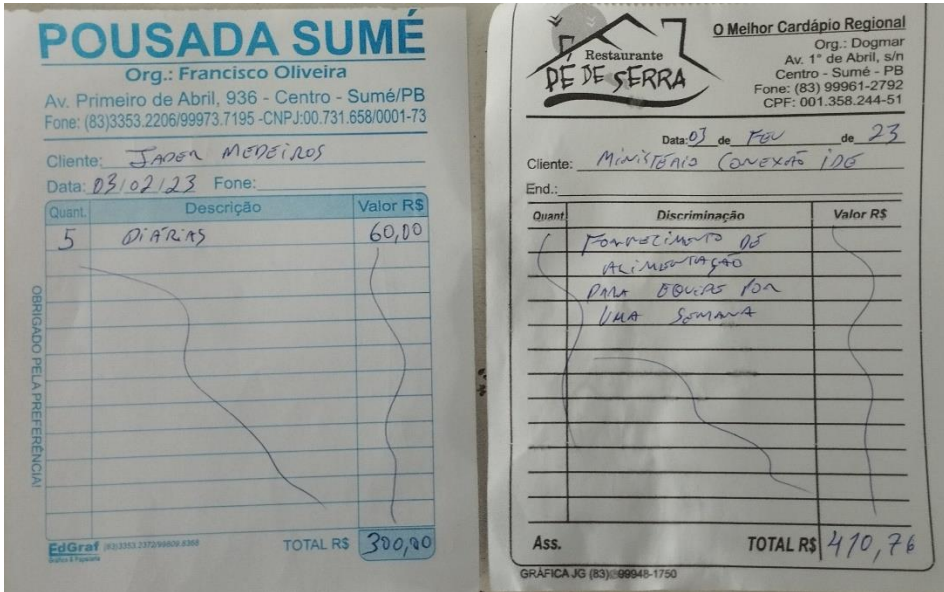 POUSADA SUMÉ
Org.: Francisco Oliveira
Av. Primeiro de Abril, 936 - Centro - Sumé/PB
Fone: (83)3353.2206/99973.7195 -CNPJ:00.731.658/0001-73
Cliente: JADER MEDEIROS
Data: 03/02/23 Fone:
Quant. Descrição Valor R$
5 DIÁRIAS 60,00
OBRIGADO PELA PREFERÊNCIA!
EdGraf
TOTAL R$ 300,00
Restaurante
PÉ DE SERRA
O Melhor Cardápio Regional
Org.: Dogmar
Av. 1° de Abril, s/n
Centro - Sumé - PB
Fone: (83) 99961-2792
CPF: 001.358.244-51
Data: 03 de FEV de 23
Cliente: MINISTÉRIO CONEXÃO IDE
End.:
Quant Discriminação Valor R$
FORNECIMENTO DE
ALIMENTAÇÃO
PARA EQUIPE POR
UMA SEMANA
Ass. TOTAL R$ 410,76
GRÁFICA JG (83) 99948-1750